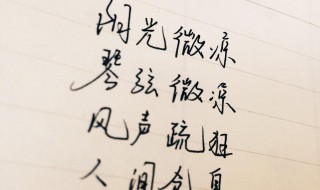 阳光微凉
琴弦微凉
风声疏狂
人间仓皇